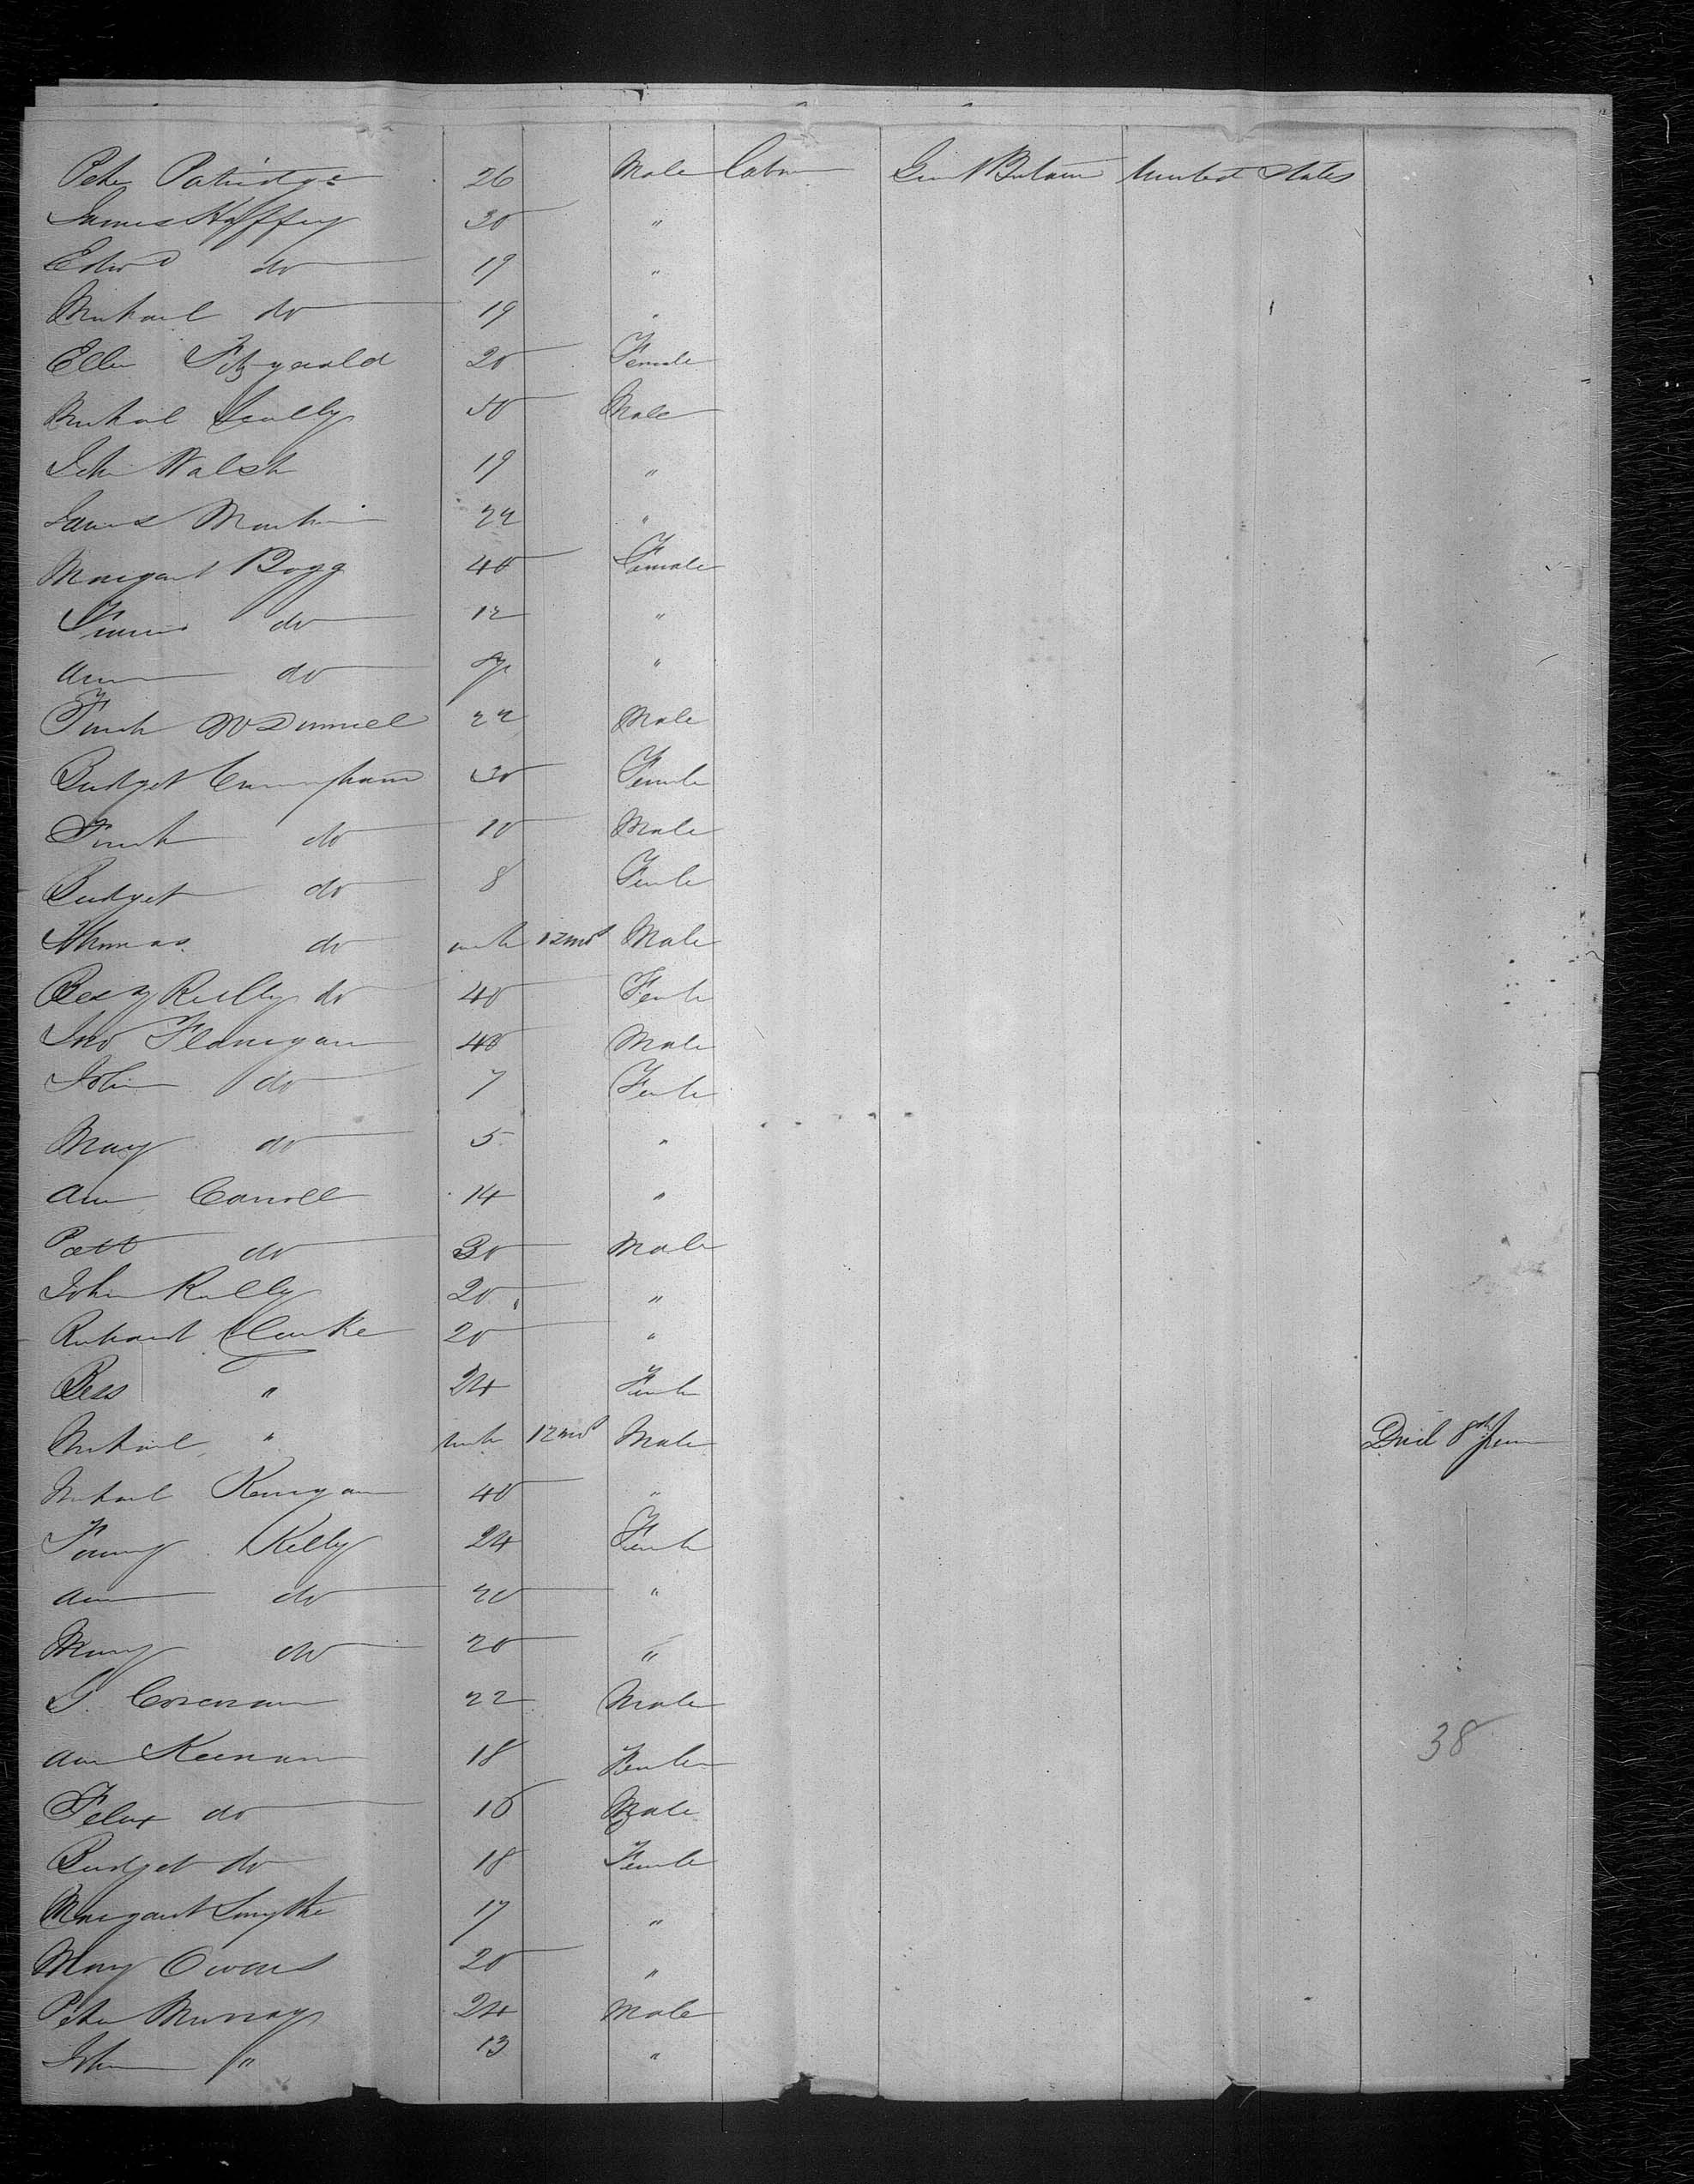 Peter Patridge 26 Male Labour Great Britain United States
James Haffey 30 "
Edwd do 19 "
Michael do 19 "
Ellen Fitzgerald 20 Female
Michael Scully 50 Male
John Walsh 19 "
James Martin 22 "
Margaret Bogg 40 Female
do 12 "
Ann do "
McDonnell 22 Male
Bridget Cunningham 30 Female
do 10 Male
Bridget do 8 Female
Thomas do under 12 mos Male
Bessy Reilly do 40 Female
Jno Flanigan 40 Male
John do 7 Female
Mary do 5 "
Ann Carroll 14 "
Patt do 30 Male
John Reilly 20 "
Richard Clarke 20 "
Bess " 24 Female
Michael " under 12 mos Male Died 8th June
Michael Kerrigan 40 "
Kelly 24 Female
Ann do 20 "
Mary do 20 "
Corcoran 22 Male
Ann Keenan 18 Female
38
Felix do 16 Male
Bridget do 18 Female
Margaret Smythe 17 "
Mary Owens 20 "
Peter Murray 24 Male
John " 13 "